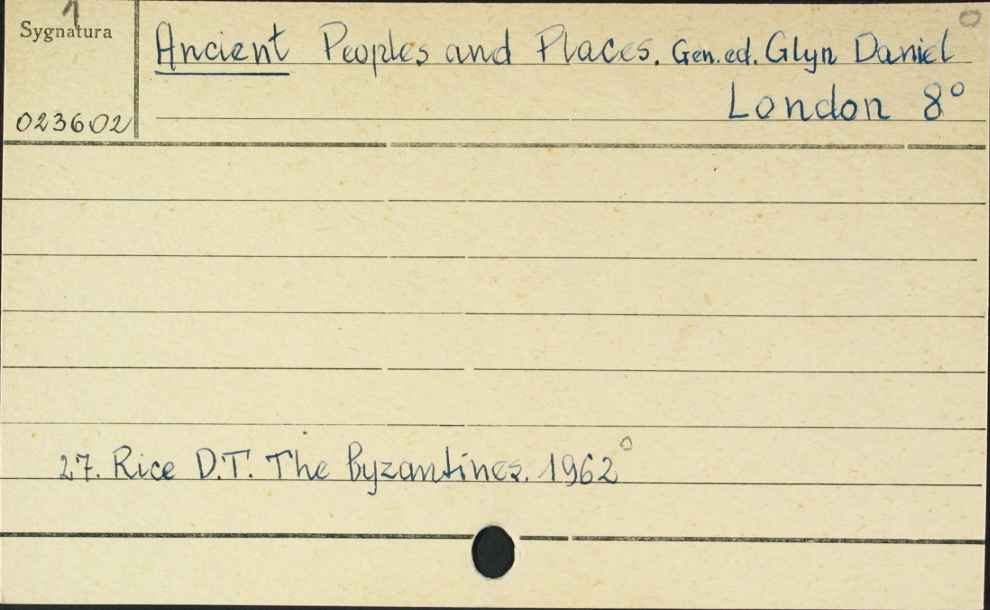 1
Sygnatura
Ancient Peoples and Places. Gen. ed. Glyn Daniel
London 8°
023602
27. Rice D.T. The Byzantines. 1962°